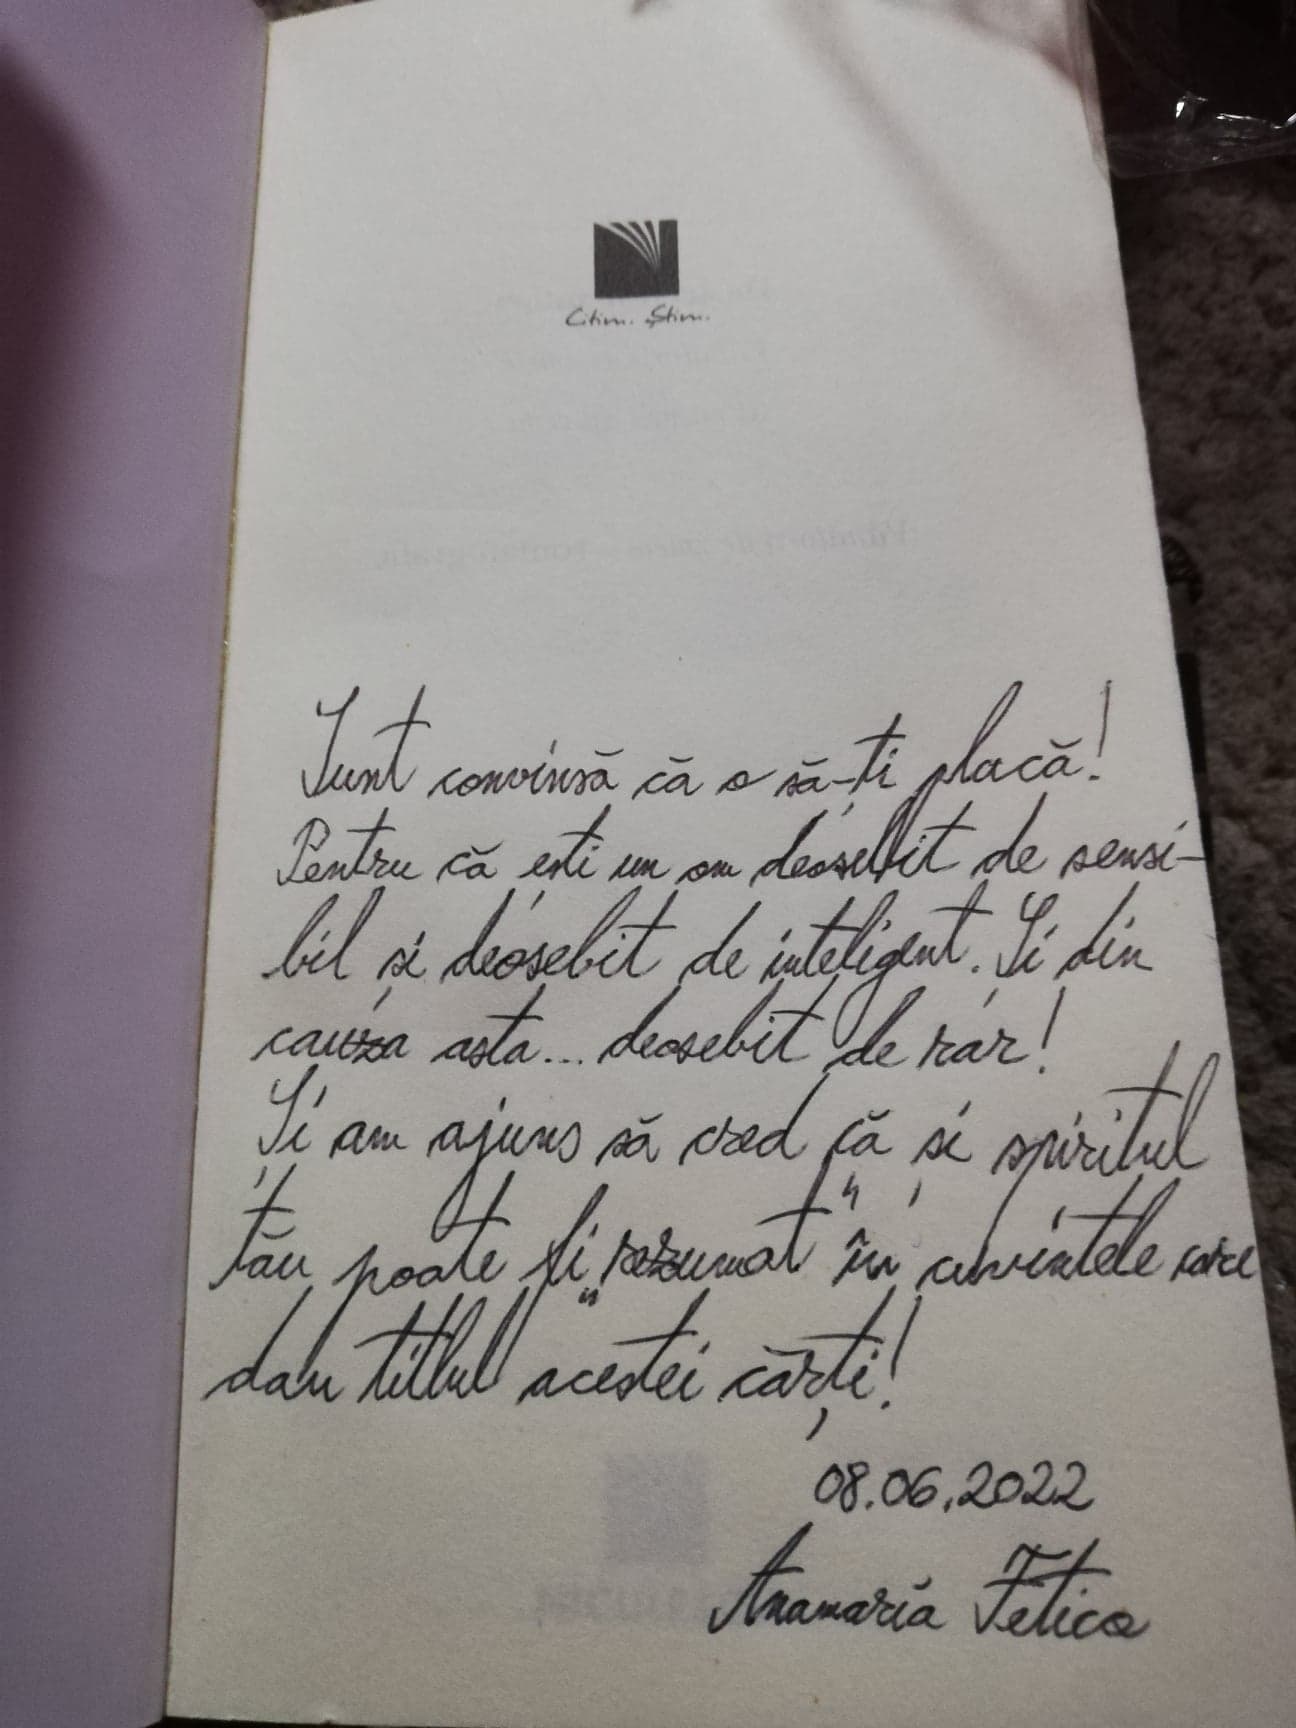 Citim. Știm.
Sunt convinsă că o să-ți placă!
Pentru că ești un om deosebit de sensi-
bil și deosebit de inteligent. Și din
cauza asta... deosebit de rar!
Și am ajuns să cred că și spiritul
tău poate fi „rezumat” în cuvintele care
dau titlul acestei cărți!
08.06.2022
Anamaria Fetica